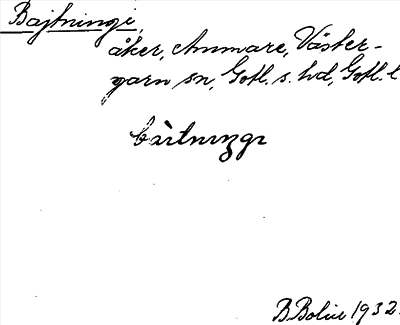 Bajtningi,
åker, Ammare, Väster-
garn sn, Gotl. s. hd, Gotl. l
bàɪtnɪŋgɪ
B. Bolin 1932.